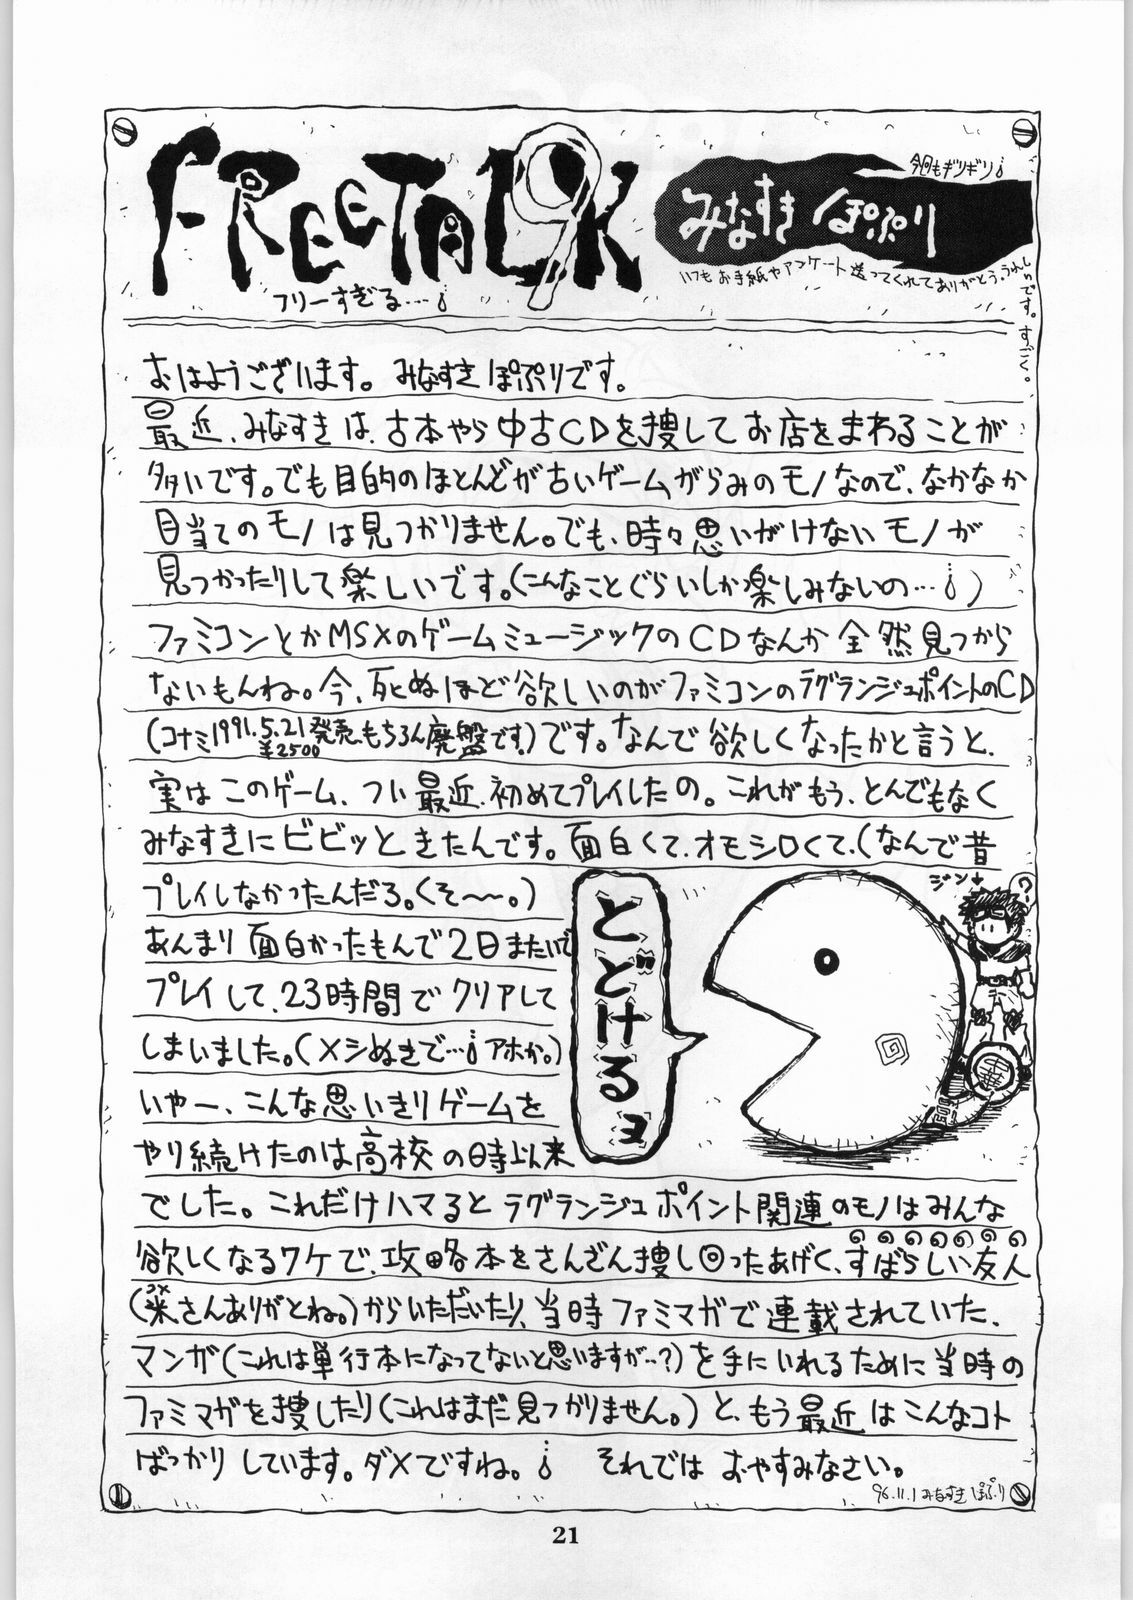 FREETALK 9
フリーすぎる…
みなすき ぽぷり
今回もギリギリ
いつもお手紙やアンケート送ってくれてありがとう。うれしいです。すごく。
おはようございます。みなすき ぽぷりです。
最近、みなすきは、古本やら中古CDを捜してお店をまわることが
多いです。でも目的のほとんどが古いゲームがらみのモノなので、なかなか
目当てのモノは見つかりません。でも、時々思いがけないモノが
見つかったりして楽しいです。(こんなことぐらいしか楽しみないの…)
ファミコンとかMSXのゲームミュージックのCDなんか全然見つから
ないもんね。今、死ぬほど欲しいのがファミコンのラグランジュポイントのCD
(コナミ1991.5.21発売¥2500もちろん廃盤です。)です。なんで欲しくなったかと言うと、
実はこのゲーム、つい最近、初めてプレイしたの。これがもう、とんでもなく
みなすきにビビッときたんです。面白くて、オモシロくて、(なんで昔
プレイしなかったんだろ。(そ〜。)
あんまり面白かったもんで2日またいで
プレイして、23時間でクリアして
しまいました。(メシぬきで…アホか。)
いやー、こんな思いきりゲームを
やり続けたのは高校の時以来
でした。これだけハマるとラグランジュポイント関連のモノはみんな
欲しくなるワケで、攻略本をさんざん捜し回ったあげく、すばらしい友人
(米コメさんありがとね。)からいただいたり、当時ファミマガで連載されていた、
マンガ(これは単行本になってないと思いますが…?)を手にいれるために当時の
ファミマガを捜したり(これはまだ見つかりません。)と、もう最近はこんなコト
ばっかりしています。ダメですね。 それでは おやすみなさい。
'96.11.1 みなすき ぽぷり
とどけるヨ
ジン→
?
中華
21